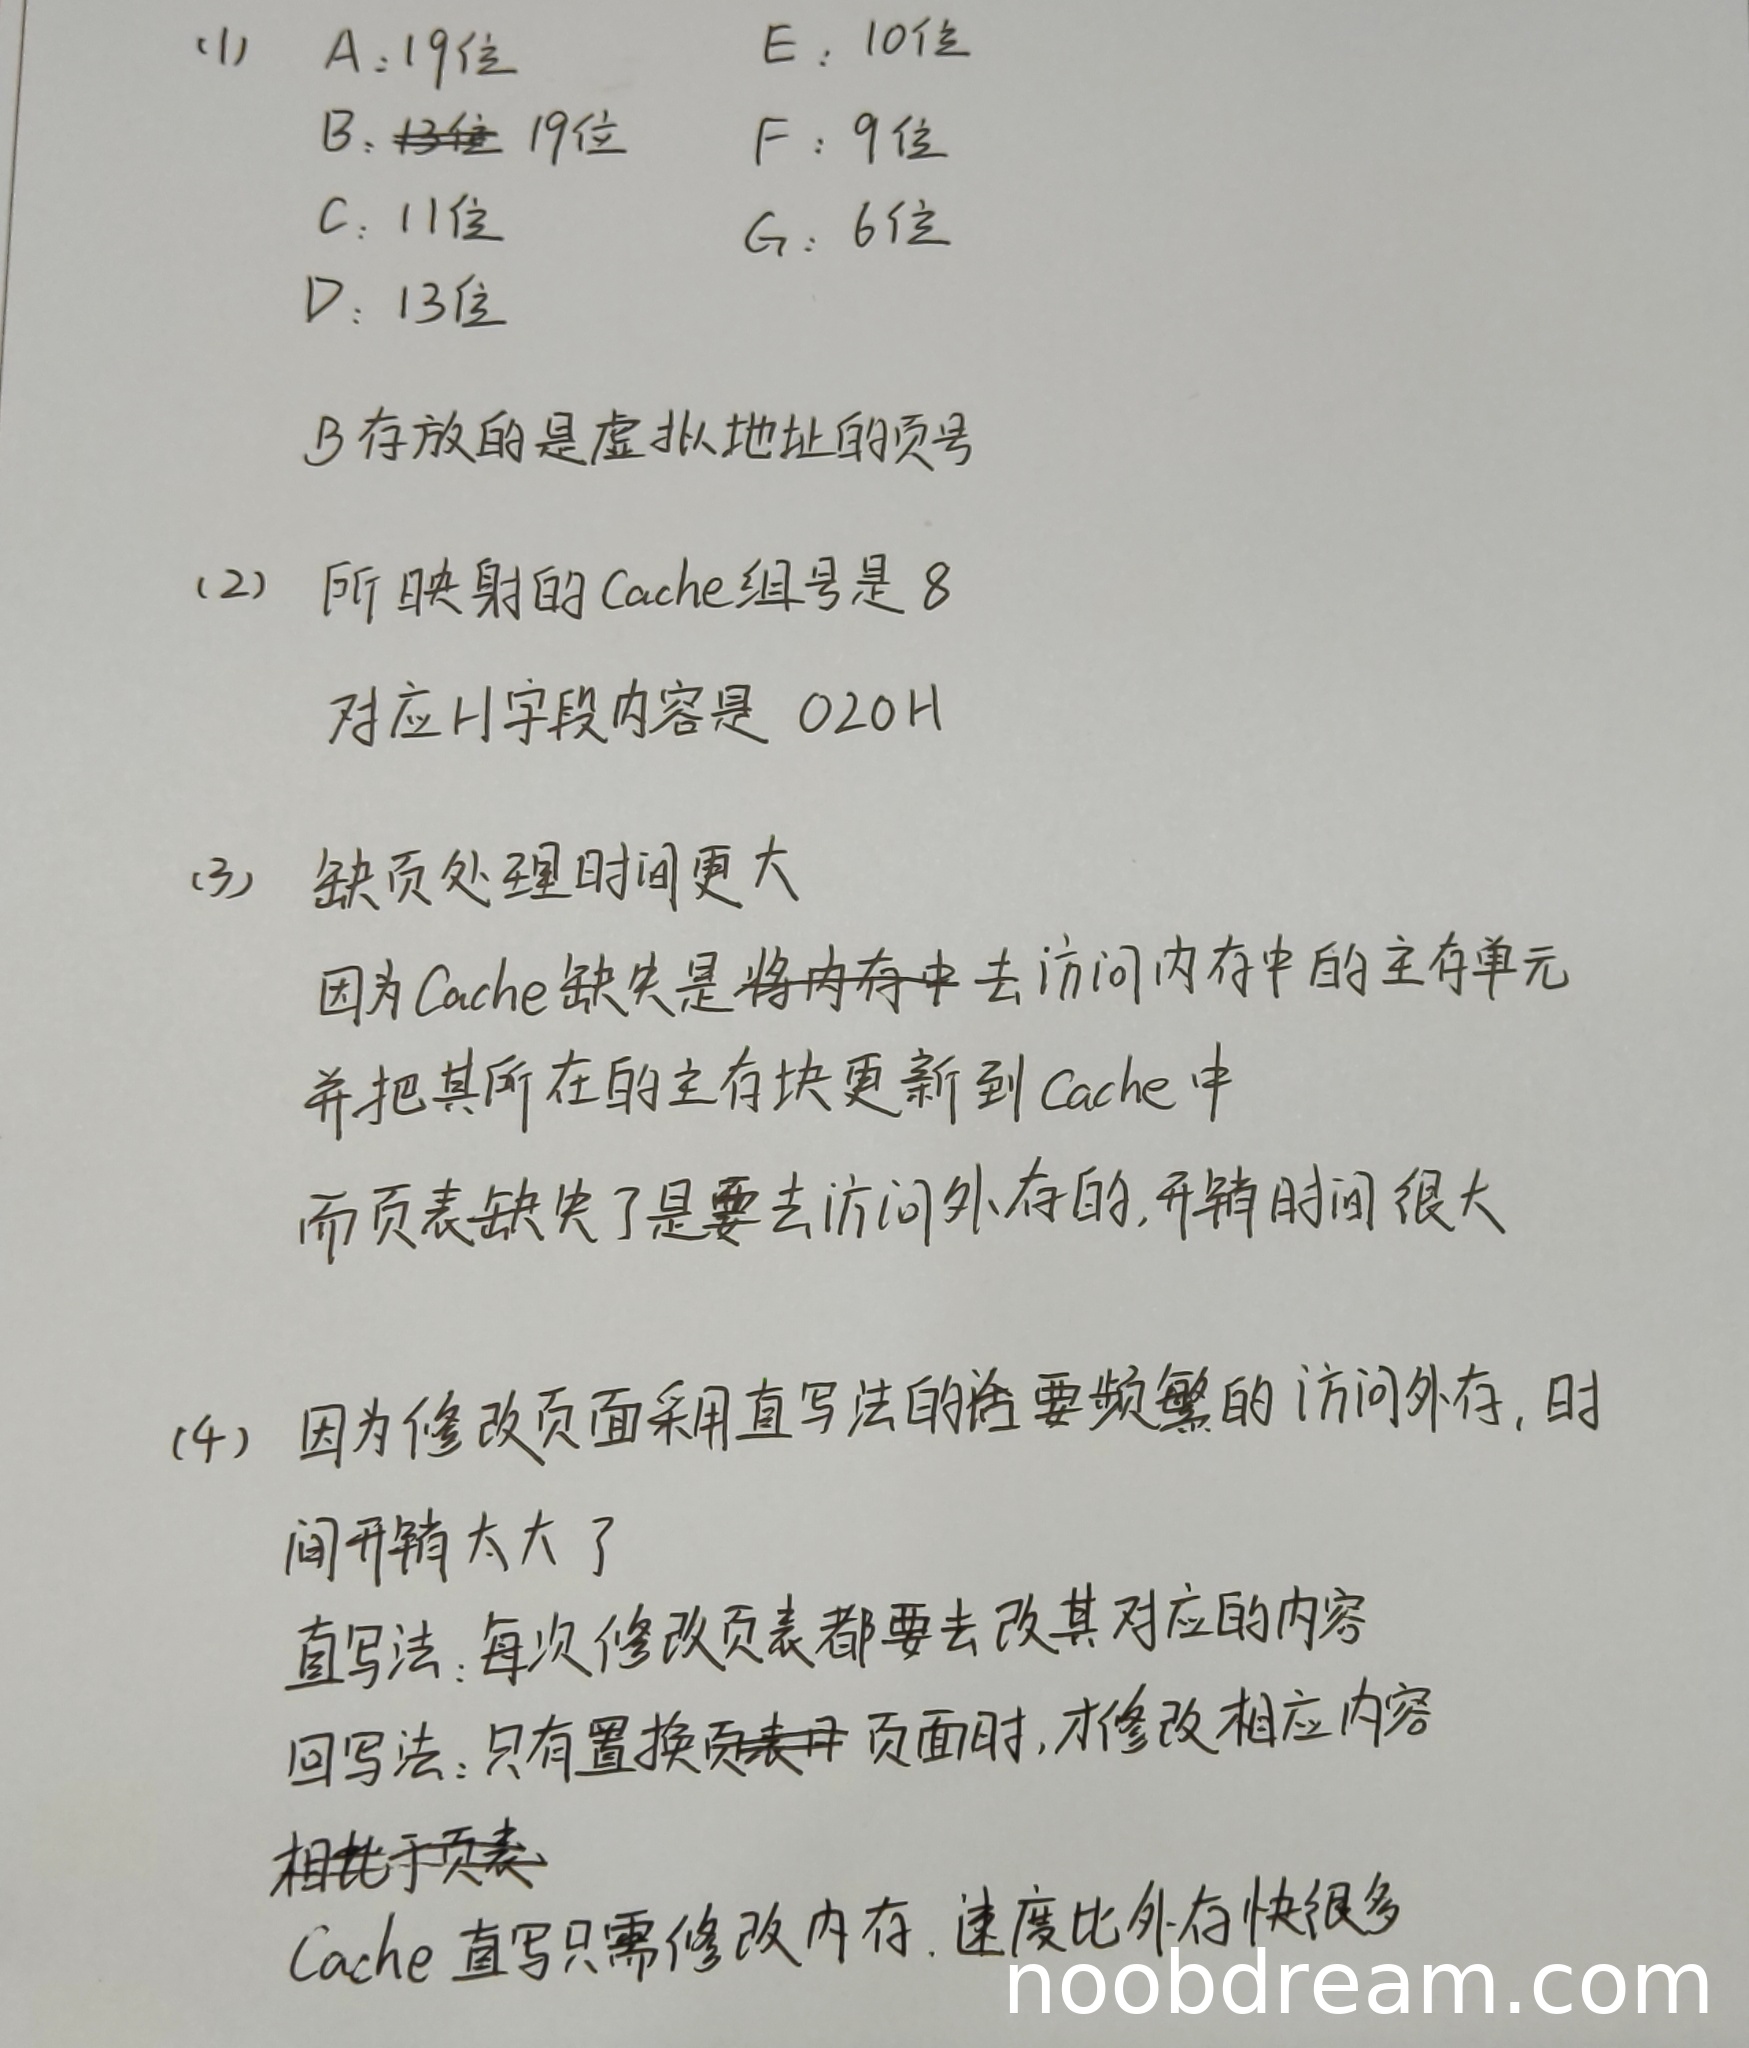 (1) A:19位 E:10位
B:13位 19位 F:9位
C:11位 G:6位
D:13位
B存放的是虚拟地址的页号
(2) 所映射的Cache组号是8
对应H字段内容是 020H
(3) 缺页处理时间更大
因为Cache缺失是将内存中去访问内存中的主存单元
并把其所在的主存块更新到Cache中
而页表缺失了是要去访问外存的,开销时间很大
(4) 因为修改页面采用直写法的话要频繁的访问外存,时
间开销太大了
直写法:每次修改页表都要去改其对应的内容
回写法:只有置换页表中页面时,才修改相应内容
相比于页表
Cache直写只需修改内存.速度比外存快很多
noobdream.com